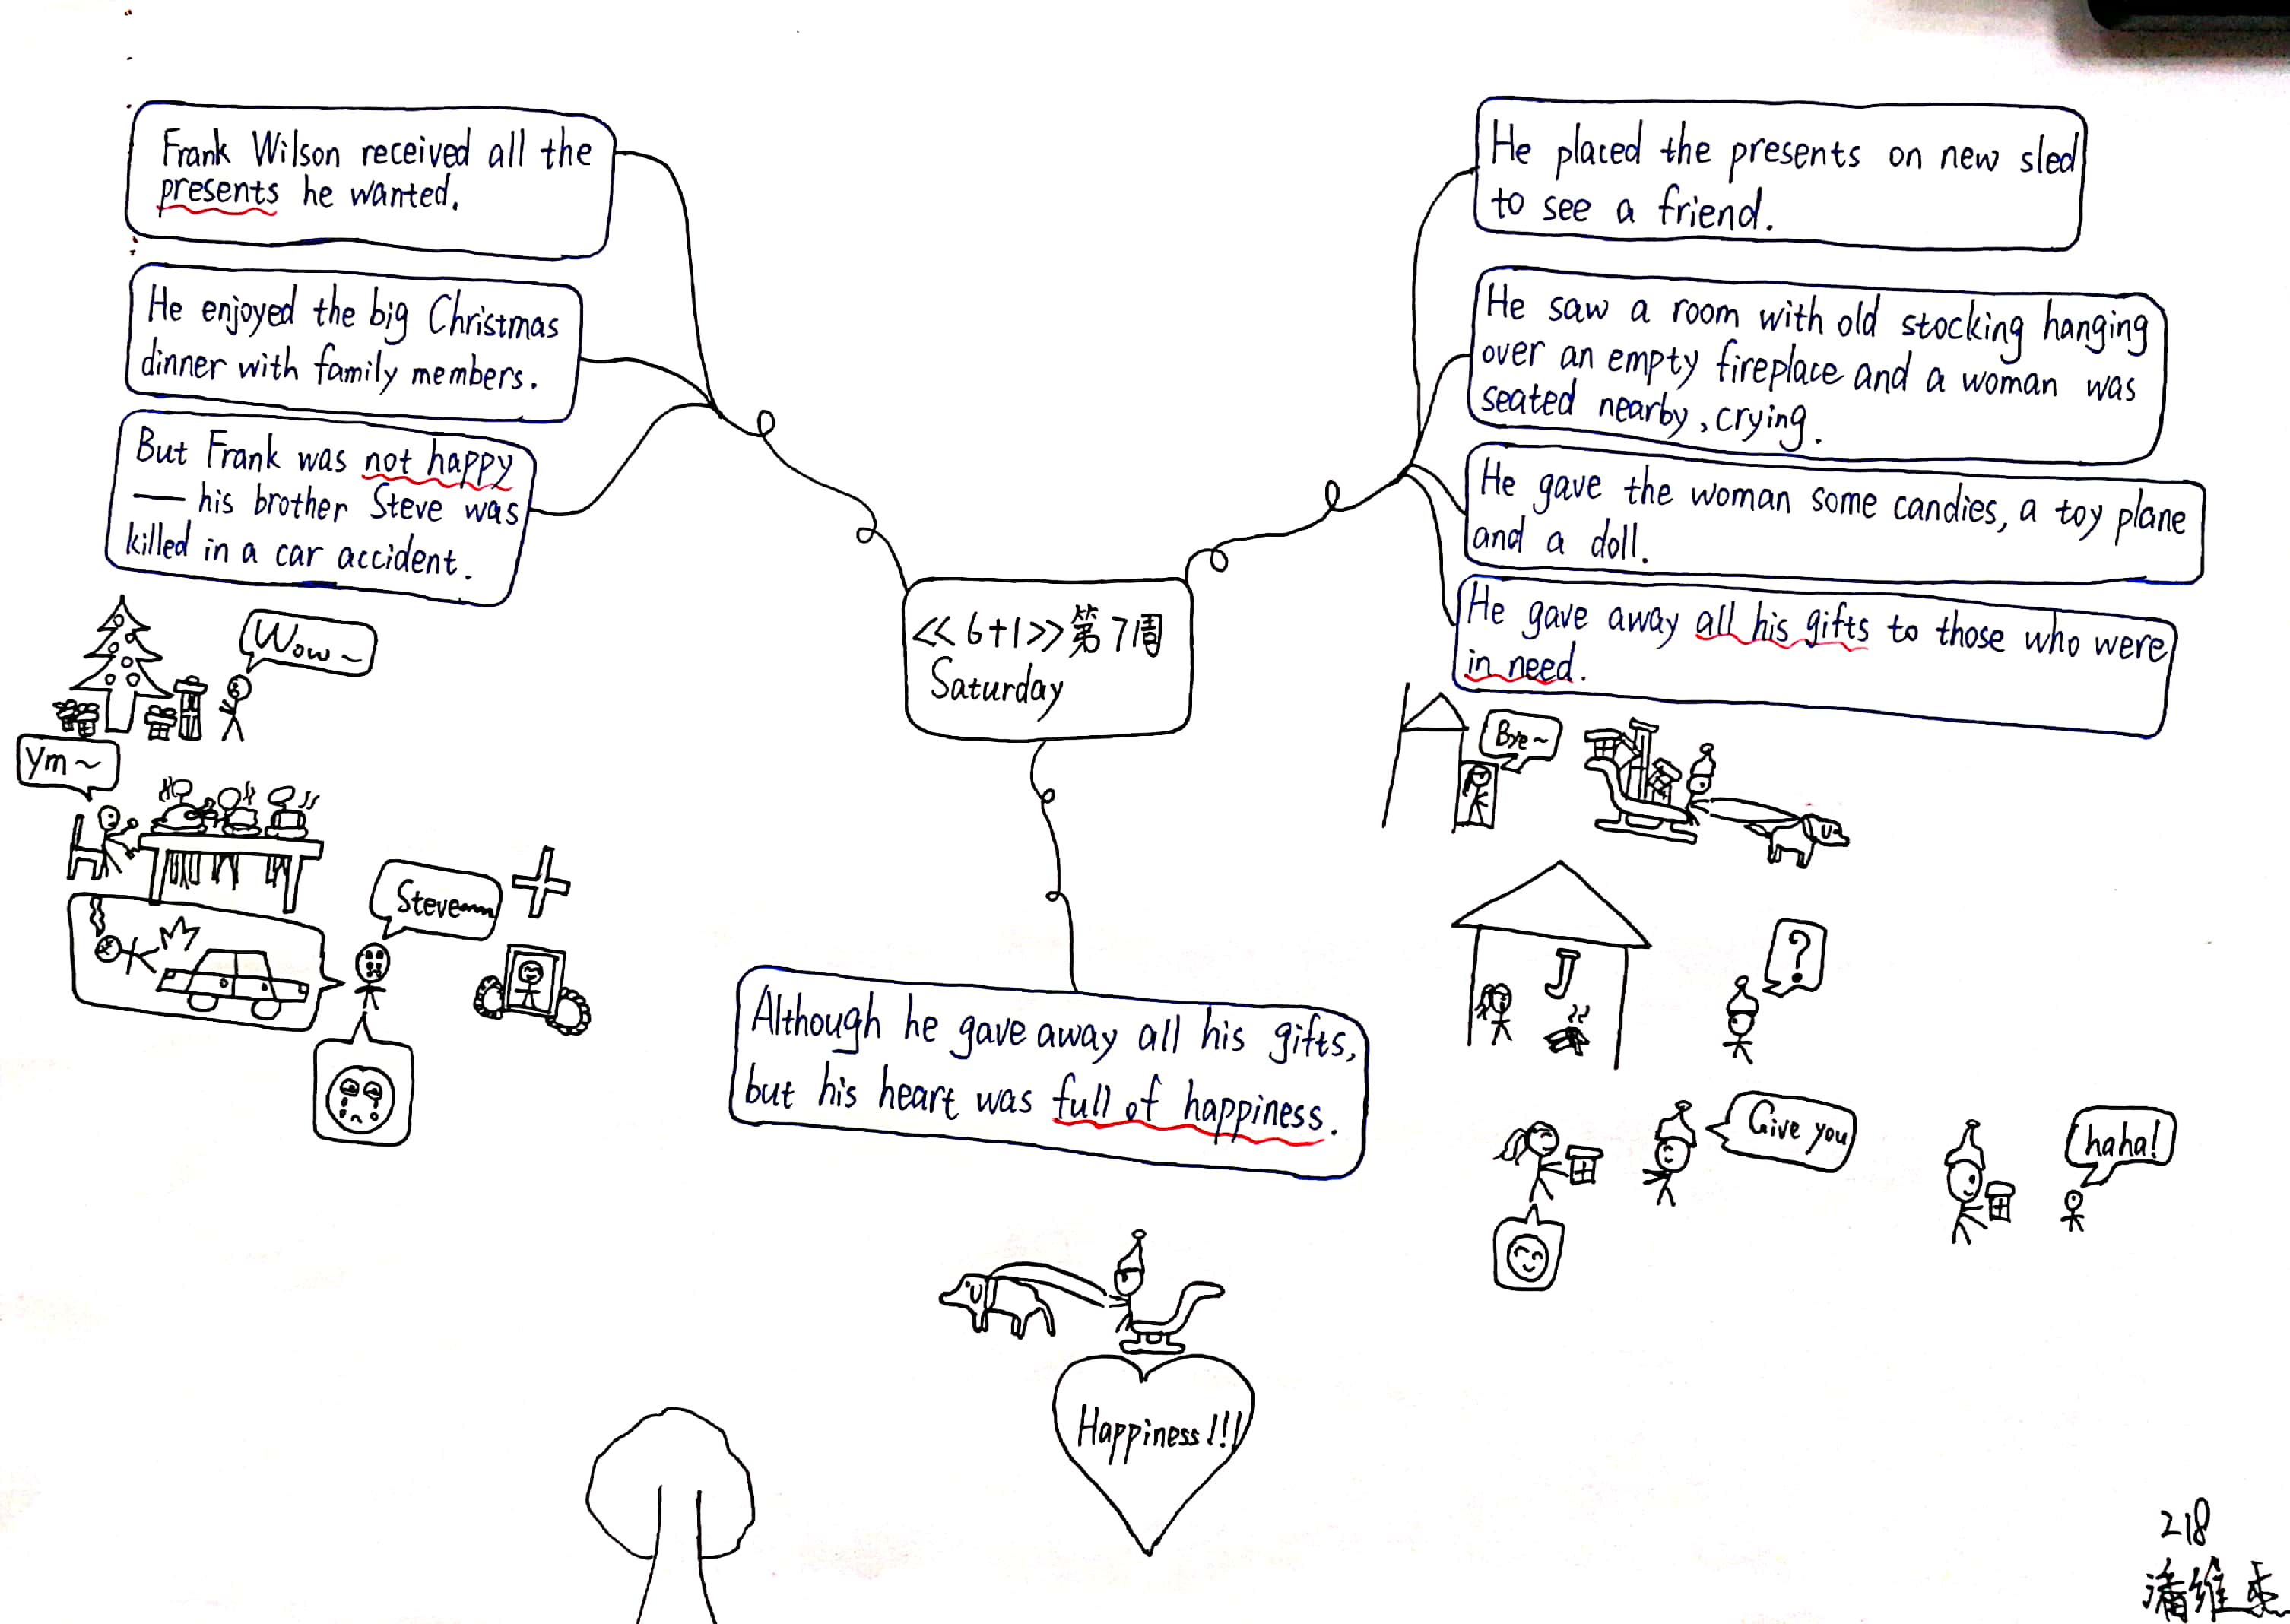 Frank Wilson received all the
presents he wanted.
He enjoyed the big Christmas
dinner with family members.
But Frank was not happy
— his brother Steve was
killed in a car accident.
Wow~
Ym~
Steve
<<6+1>>第7周
Saturday
He placed the presents on new sled
to see a friend.
He saw a room with old stocking hanging
over an empty fireplace and a woman was
seated nearby, crying.
He gave the woman some candies, a toy plane
and a doll.
He gave away all his gifts to those who were
in need.
Bye~
?
Give you
haha!
Although he gave away all his gifts,
but his heart was full of happiness.
Happiness!!!
218
潘维